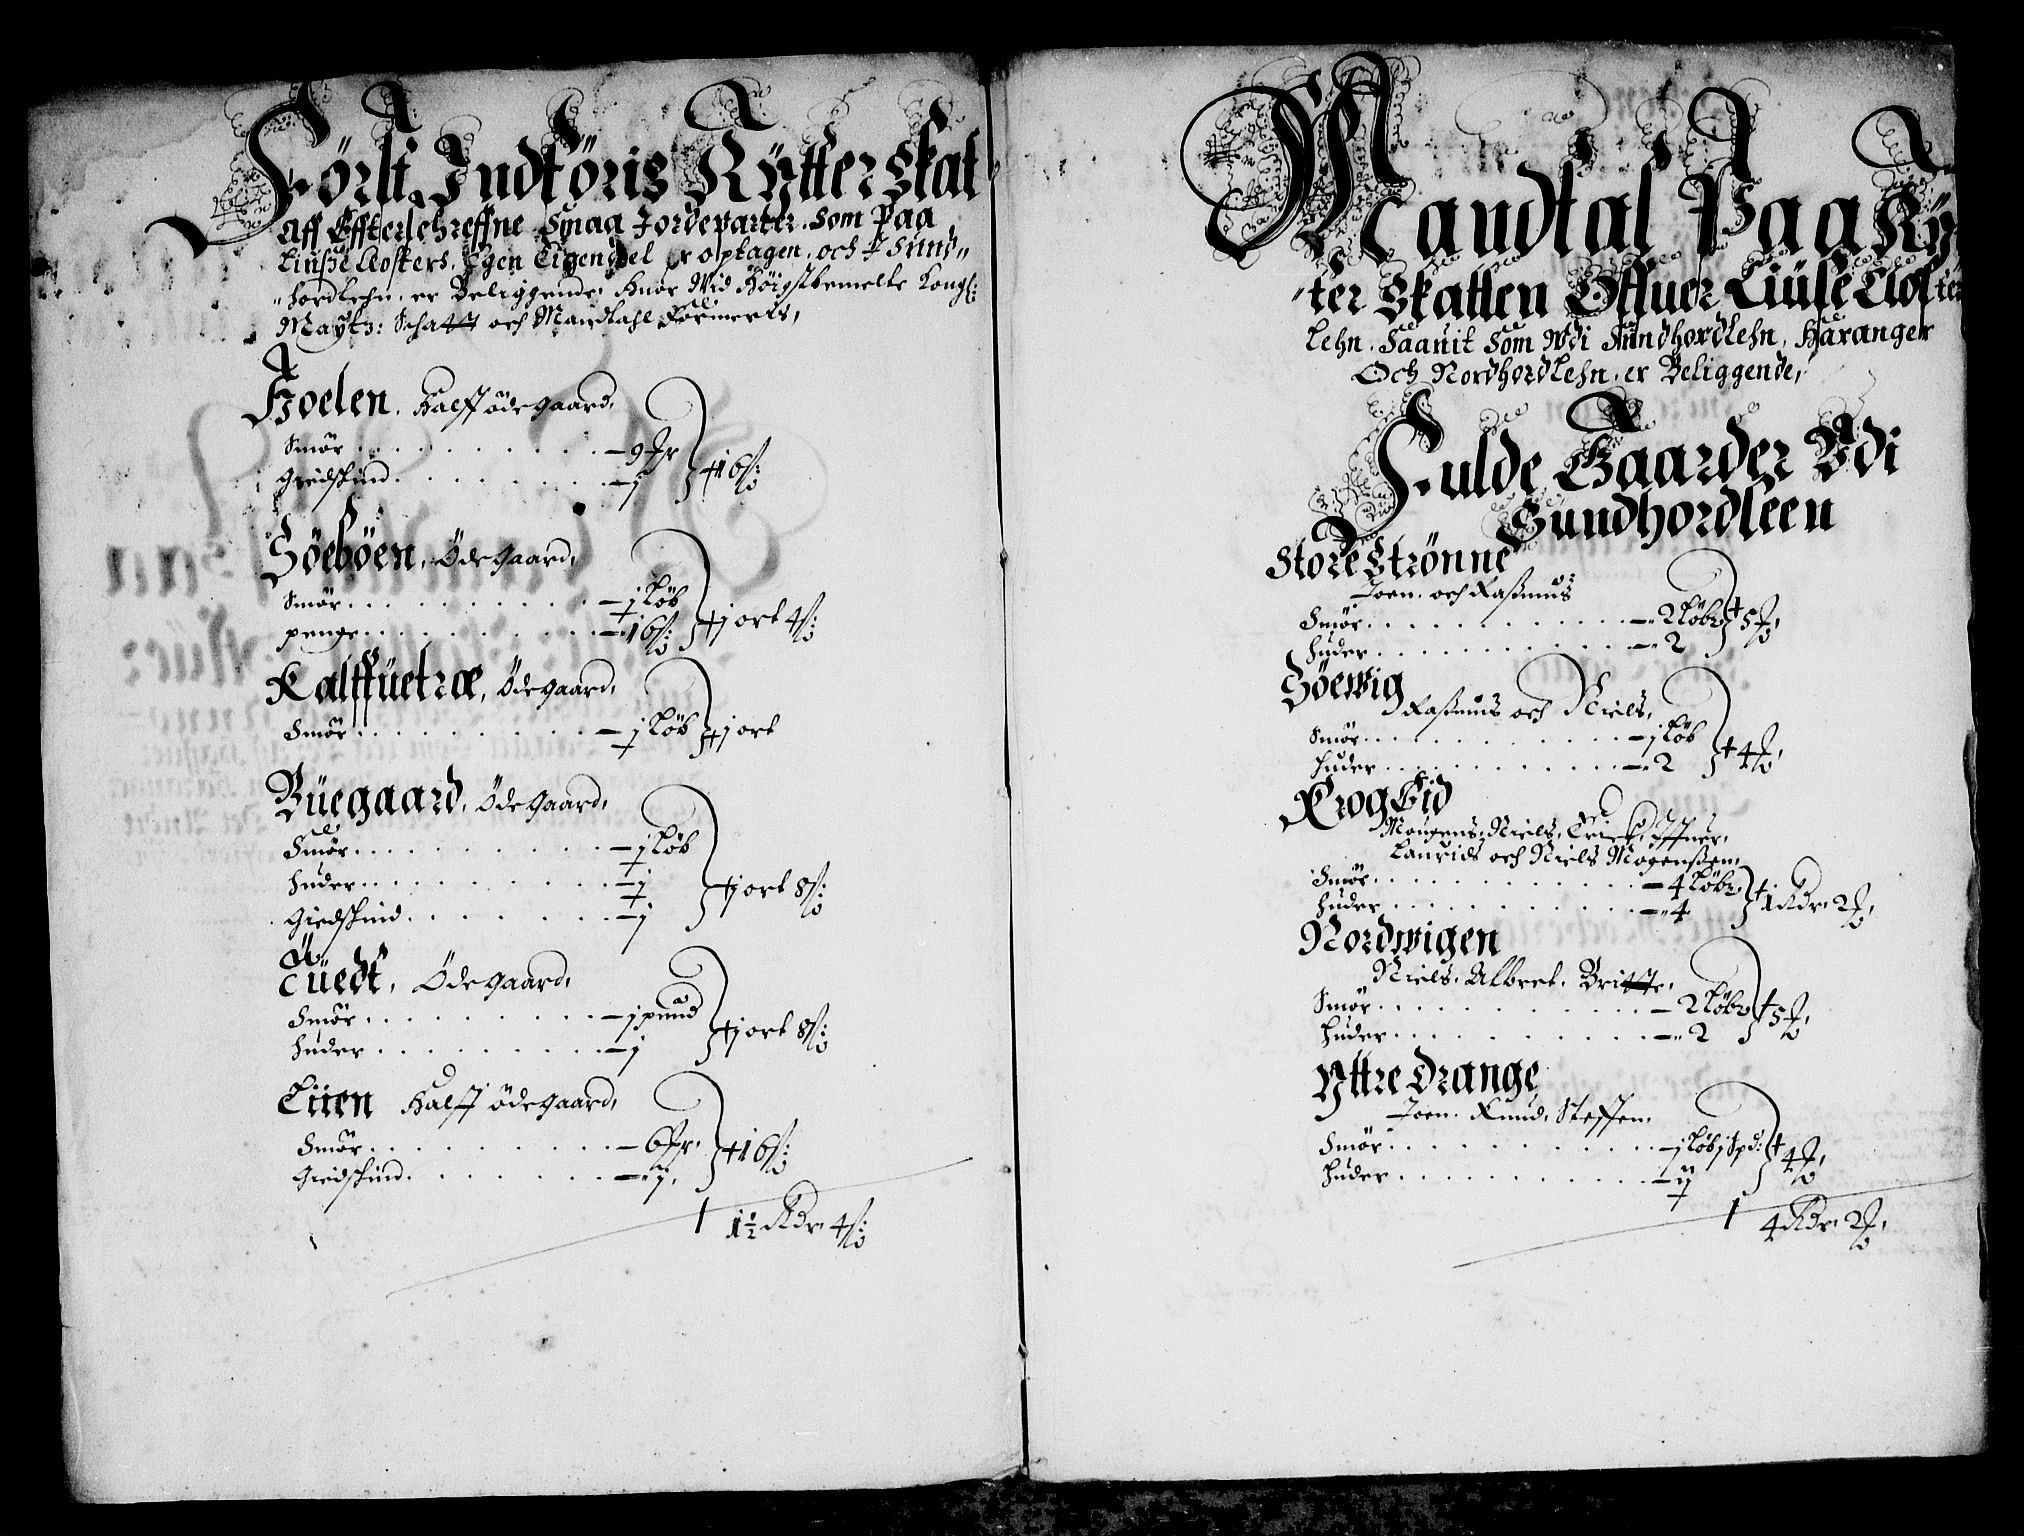 Förli Indföris Rÿtter skat
Aff Effterschreffne Smaa Jordeparter som Paa
Liuße Closters Egen Eigendel er optagen, och i Sund-
hordlehn er Beliggende, huor Wid Höigstbemelte Kongl:
Maÿtz: Schatt och Mandtahl Formerts,
Hoelen, halff ödegaard,
Smör - 9 Mr
Giedskind - j
+ 16 ß:
Söeböen, Ödegaard,
Smör - j Løb
penge - 16 ß:
+ j ort 4 ß:
Kalffüetræ, Ödegaard,
Smör - j Løb
+ j ort
Büegaard, Ödegaard,
Smör - j Løb
huder - j
Giedskind - j
+ j ort 8 ß:
Tüedt, Ödegaard,
Smör - j pund
huder - j
+ j ort 8 ß:
Liien halff ödegaard,
Smör - 6 Mr,
Giedskind - j,
+ 16 ß:
1½ Rdr, 4 ß:
Mandtal Paa Rÿt-
ter Skatten Offuer Liüse Closter
Lehn, Saauit Som Wdi Sündhordlehn, Haranger
Och Nordhordlehn, er Beliggende,
Fulde Gaarder Vdi
Sundhordleen
Store Strönne
Joen och Raßmus
Smör - 2 Løber
huder - 2
+ 5 ß
Söewig
Raßmus och Niels,
Smör - j Løb
huder - 2
+ 4 ß
Krog Eid
Mougens, Niels, Erich, Iffuer,
Laurids och Niels Mogenßen,
Smör - 4 Løber
huder - 4
+ 1 Rdr, 2 ß,
Nordwigen
Niels, Albret, Britte,
Smör - 2 Løber
huder - 2
+ 5 ß,
Yttre Drange
Joen, Knud, Steffen,
Smör - j Løb j pd:
huder - ij
+ 4 ß,
4 Rdr, 2 ß,